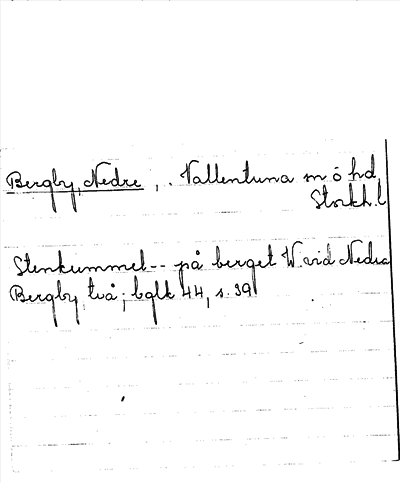 Bergby, Nedre, .. Vallentuna sn o hd,
Stockh. l
Stenkummel -- på berget W. vid Nedra
Bergby, två; bglk 44, s. 39